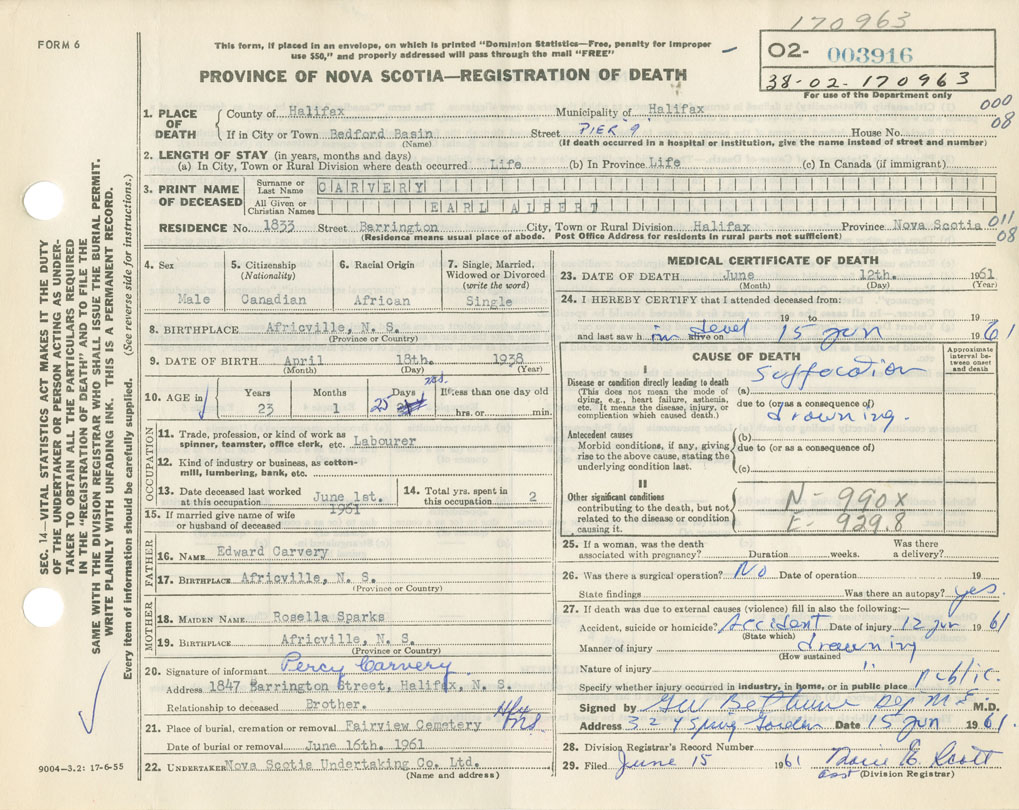 170963
FORM 6
This form, if placed in an envelope, on which is printed "Dominion Statistics—Free, penalty for improper
use $50," and properly addressed will pass through the mail "FREE"
02- 003916
38-02-170963
For use of the Department only
PROVINCE OF NOVA SCOTIA—REGISTRATION OF DEATH
000
08
1. PLACE OF DEATH
County of Halifax Municipality of Halifax
If in City or Town Bedford Basin Street PIER 9 House No.
(Name) (If death occurred in a hospital or institution, give the name instead of street and number)
2. LENGTH OF STAY (in years, months and days)
(a) In City, Town or Rural Division where death occurred Life (b) In Province Life (c) In Canada (if immigrant)
3. PRINT NAME OF DECEASED
Surname or Last Name CARVERY
All Given or Christian Names EARL ALBERT
RESIDENCE No. 1833 Street Barrington City, Town or Rural Division Halifax Province Nova Scotia
011
08
(Residence means usual place of abode. Post Office Address for residents in rural parts not sufficient)
4. Sex
Male
5. Citizenship
(Nationality)
Canadian
6. Racial Origin
African
7. Single, Married,
Widowed or Divorced
(write the word)
Single
8. BIRTHPLACE Africville, N. S.
(Province or Country)
9. DATE OF BIRTH April 18th. 1938
(Month) (Day) (Year)
10. AGE in
Years
23
Months
1
Days
25
If less than one day old
hrs. or min.
OCCUPATION
11. Trade, profession, or kind of work as
spinner, teamster, office clerk, etc. Labourer
12. Kind of industry or business, as cotton-
mill, lumbering, bank, etc.
13. Date deceased last worked
at this occupation June 1st. 1961
14. Total yrs. spent in
this occupation 2
15. If married give name of wife
or husband of deceased
FATHER
16. NAME Edward Carvery
17. BIRTHPLACE Africville, N. S.
(Province or Country)
MOTHER
18. MAIDEN NAME Rosella Sparks
19. BIRTHPLACE Africville, N. S.
(Province or Country)
20. Signature of informant Percy Carvery
Address 1847 Barrington Street, Halifax, N. S.
Relationship to deceased Brother.
21. Place of burial, cremation or removal Fairview Cemetery
Date of burial or removal June 16th. 1961
22. UNDERTAKER Nova Scotia Undertaking Co. Ltd.
(Name and address)
MEDICAL CERTIFICATE OF DEATH
23. DATE OF DEATH June 12th. 1961
(Month) (Day) (Year)
24. I HEREBY CERTIFY that I attended deceased from:
19 to 19
and last saw h im alive on dead 15 Jun 1961
CAUSE OF DEATH
Approximate
interval be-
tween onset
and death
I
Disease or condition directly leading to death
(This does not mean the mode of
dying, e.g., heart failure, asthenia,
etc. It means the disease, injury, or
complication which caused death.)
(a) Suffocation
due to (or as a consequence of)
drowning.
Antecedent causes
Morbid conditions, if any, giving
rise to the above cause, stating the
underlying condition last.
(b)
due to (or as a consequence of)
(c)
II
Other significant conditions
contributing to the death, but not
related to the disease or condition
causing it.
N-990X
E-929.8
25. If a woman, was the death
associated with pregnancy? Duration weeks. Was there
a delivery?
26. Was there a surgical operation? No Date of operation 19
State findings Was there an autopsy? yes.
27. If death was due to external causes (violence) fill in also the following:—
Accident, suicide or homicide? Accident Date of injury 12 Jun 1961
(State which)
Manner of injury drowning
(How sustained
Nature of injury "
Specify whether injury occurred in industry, in home, or in public place public.
Signed by GW Bethune Dep M E M.D.
Address 324 Spring Garden Date 15 Jun 1961.
28. Division Registrar's Record Number
29. Filed June 15 1961 E. Scott
(Division Registrar)
SEC. 14—VITAL STATISTICS ACT MAKES IT THE DUTY
OF THE UNDERTAKER OR PERSON ACTING AS UNDER-
TAKER TO OBTAIN ALL THE PARTICULARS REQUIRED
IN THE "REGISTRATION OF DEATH" AND TO FILE THE
SAME WITH THE DIVISION REGISTRAR WHO SHALL ISSUE THE BURIAL PERMIT.
WRITE PLAINLY WITH UNFADING INK. THIS IS A PERMANENT RECORD.
Every item of information should be carefully supplied. (See reverse side for instructions.)
9004—3.2: 17-6-55